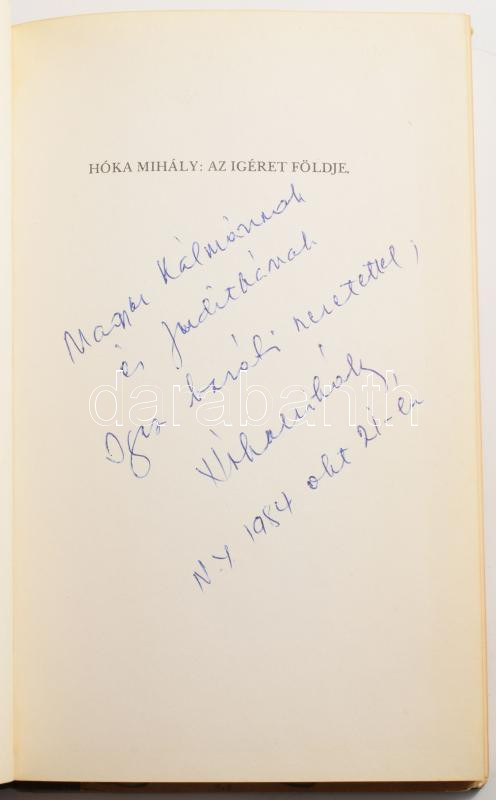 HÓKA MIHÁLY: AZ IGÉRET FÖLDJE.
Magyar Kálmánnak
és Judithának
Igaz baráti szeretettel;
Hóka Mihály,
N.Y 1984 okt 21-én
darabanth